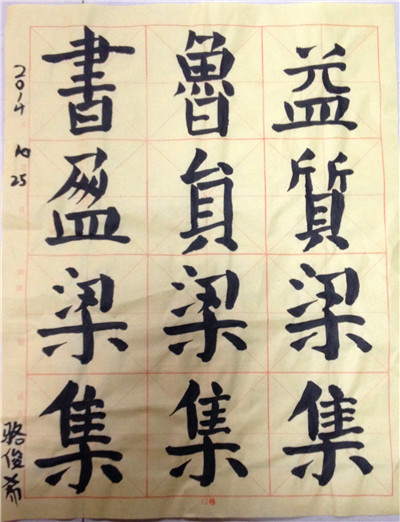 益質梁集
魯貟梁集
書盈梁集
2014 10 25
駱俊希